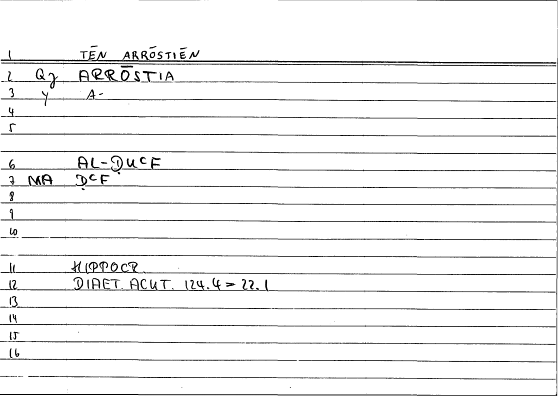 1 TĒN ARRŌSTIĒN
2 Qz ARRŌSTIA
3 y A-
4
5
6 AL-ḌUᶜF
7 MA ḌᶜF
8
9
10
11 HIPPOCR.
12 DIAET. ACUT. 124.4 = 22.1
13
14
15
16